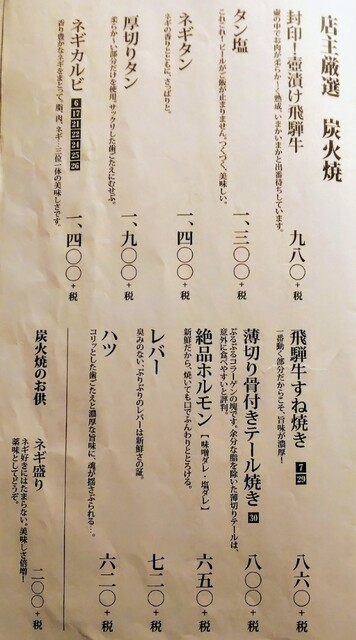 店主厳選　炭火焼
封印！壺漬け飛騨牛
壺の中でお肉が柔らか〜く熟成。いまかいまかと出番待ちしています。
九八〇+税
タン塩
これこれ！ビールがご飯が止まりません。つくづく、美味しい。
一、三〇〇+税
ネギタン
ネギの香りとともに、さっぱりと。
一、四〇〇+税
厚切りタン
柔らか〜い部分だけを使用。サックリした歯ごたえにむせぶ。
一、九〇〇+税
ネギカルビ 6 17 21 22 24 25 26
香り豊かなネギをまとって。脂、肉、ネギ…三位一体の美味しさです。
一、四〇〇+税
飛騨牛すね焼き 7 29
一番動く部分だからこそ、旨味が濃厚！
八六〇+税
薄切り骨付きテール焼き 30
ぷるぷるコラーゲンの塊です。余分な脂を除いた薄切りテールは、
意外に食べやすいと評判。
八〇〇+税
絶品ホルモン［味噌ダレ・塩ダレ］
新鮮だから、焼いても口でふんわりととろける。
六五〇+税
レバー
臭みのない、ぷりぷりのレバーは新鮮さの証。
七二〇+税
ハツ
コリッとした歯ごたえと濃厚な旨味に、魂が揺さぶられる…。
六二〇+税
炭火焼のお供
ネギ盛り
ネギ好きにはたまらない、美味しさ倍増！
薬味としてどうぞ。
二〇〇+税